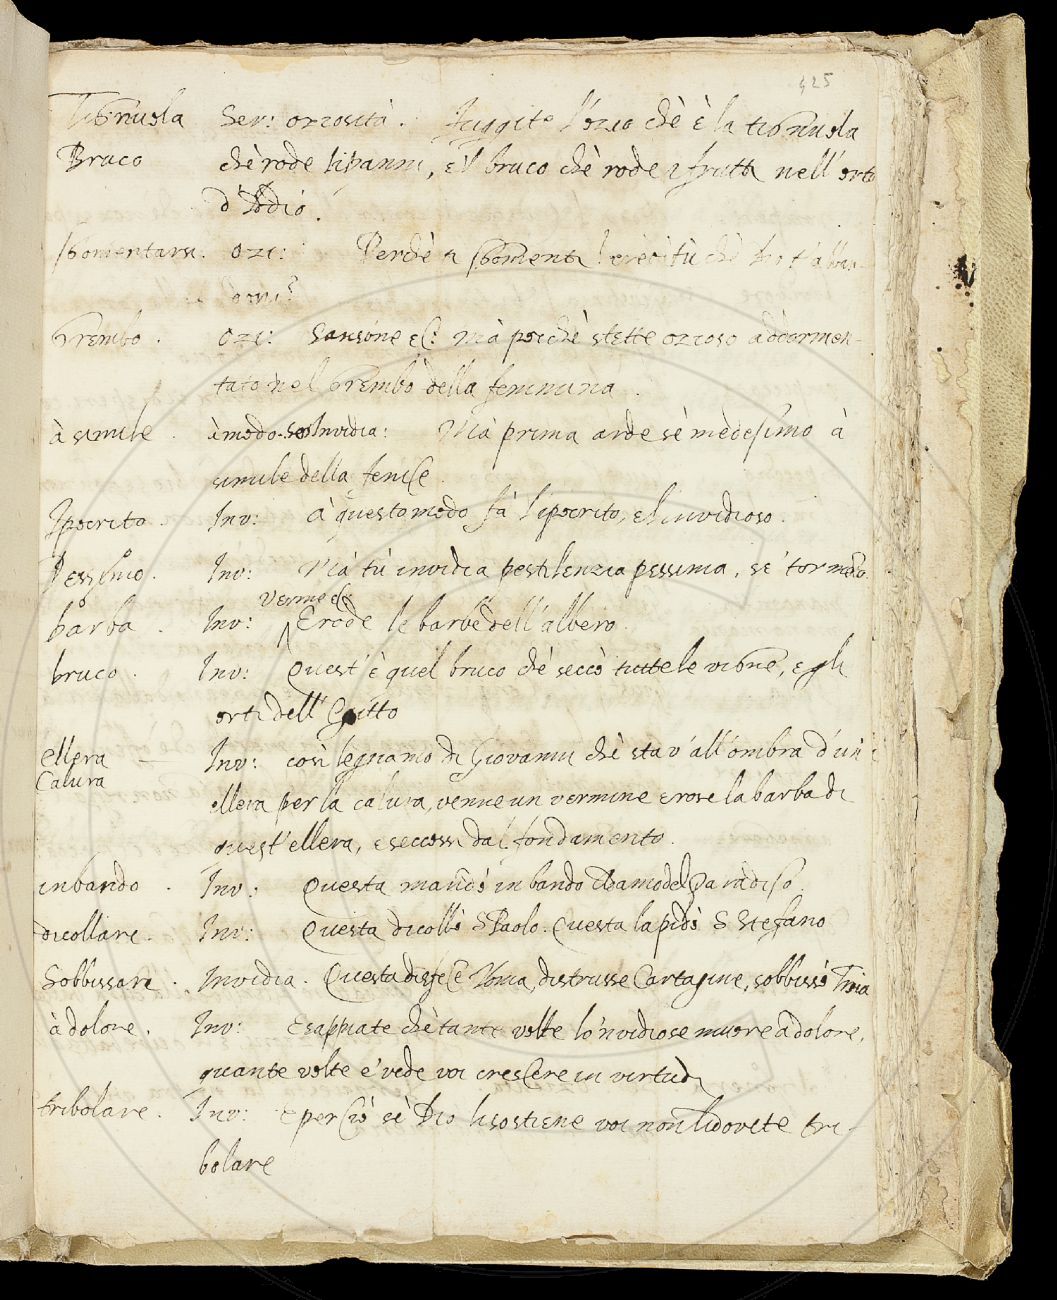 425
Tignuola Ser: oziosità. Fuggite l'ozio chè è la tignuola
Bruco chè rode li panni, e'l bruco chè rode i frutti nell'orto
d'Iddio.
sgomentarsi. Ozi: Perchè ti sgomenti? credi tù chè Dio t'abban-
doni?
Grembo. Ozi: Sansone &c: Mà poichè stette ozioso addormen-
tato nel grembo della femmina.
à simile. à modo. Invidia: Mà prima arde sè medesimo à
simile della fenice.
Ipocrito Inv: à questo modo fà l'ipocrito, e l'invidioso.
Pessimo. Inv: Mà tù invidia pestilenzia pessima, sè tormento
barba. Inv: verme &c: E rode le barbe dell'albero.
bruco. Inv: Quest'è quel bruco chè seccò tutte le vigne, e gli
orti dell'Egitto
ellera Inv: così legniamo di Giovanni chè stav'all'ombra d'un
Calura ellera per la calura, venne un vermine e rose la barba di
quest'ellera, e seccossi dal fondamento.
inbando. Inv: Questa mandò in bando Adamo del Paradiso.
dicollare. Inv: Questa dicollò S Paolo. Questa lapidò S Stefano
Sobbissare. Invidia. Questa disfece Roma, distrusse Cartagine, sobbissò Troia
à dolore. Inv: E sappiate chè tante volte lo'nvidioso muore à dolore,
quante volte e' vede voi crescere in virtude
tribolare. Inv: E perciò sè Dio li sostiene voi non li dovete tri-
bolare